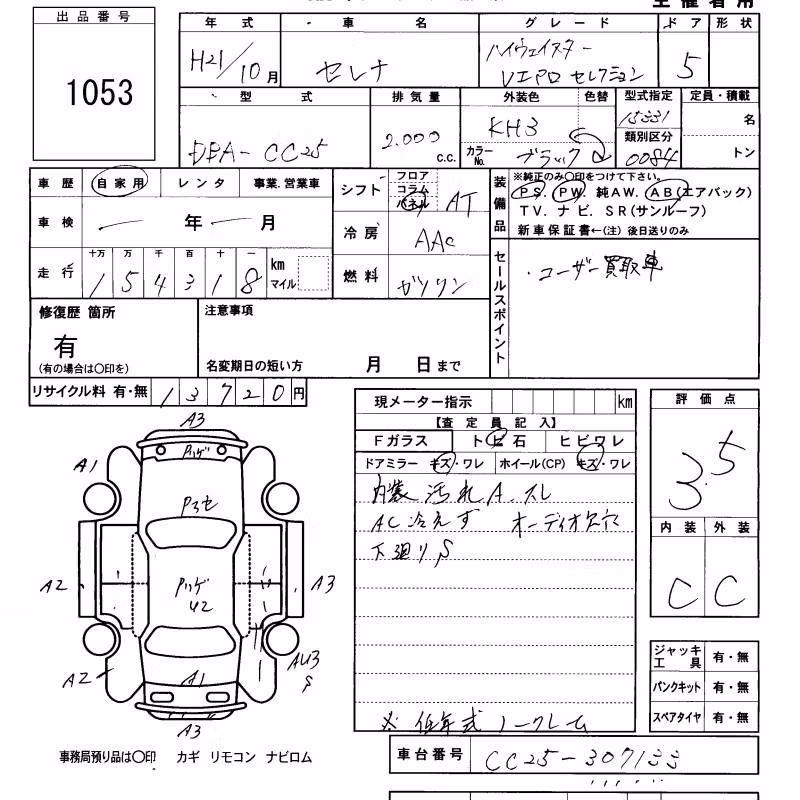 主催者用
出品番号
1053
年式 車名 グレード ドア 形状
H21/10月 セレナ ハイウェイスター Vエアロセレクション 5
型式 排気量 外装色 色替 型式指定 定員・積載
DBA-CC25 2.000 c.c. KH3 15331 名
カラーNo. ブラック 類別区分 0084 トン
車歴 自家用 レンタ 事業.営業車
車検 ー年ー月
走行 十万 万 千 百 十 一 km マイル
154318
シフト フロア コラム パネル AT
冷房 AAC
燃料 ガソリン
装備品 ※純正のみ〇印をつけて下さい。
PS. PW. 純AW. AB(エアバック)
TV. ナビ. SR(サンルーフ)
新車保証書←(注) 後日送りのみ
セールスポイント
・ユーザー買取車
修復歴 箇所
有
(有の場合は〇印を)
注意事項
名変期日の短い方 月 日まで
リサイクル料 有・無 13720円
現メーター指示 km
【査定員記入】
Fガラス トビ石 ヒビワレ
ドアミラー キズ・ワレ ホイール(CP) キズ・ワレ
内装汚れA.スレ
AC冷えず オーディオ欠穴
下廻りS
※ 低年式ノークレーム
評価点
3.5
内装 外装
C C
ジャッキ工具 有・無
パンクキット 有・無
スペアタイヤ 有・無
A3
A1
P3セ
A2
A3
U2
A2
A1
AU3
S
A3
事務局預り品は〇印 カギ リモコン ナビロム
車台番号 CC25-307133